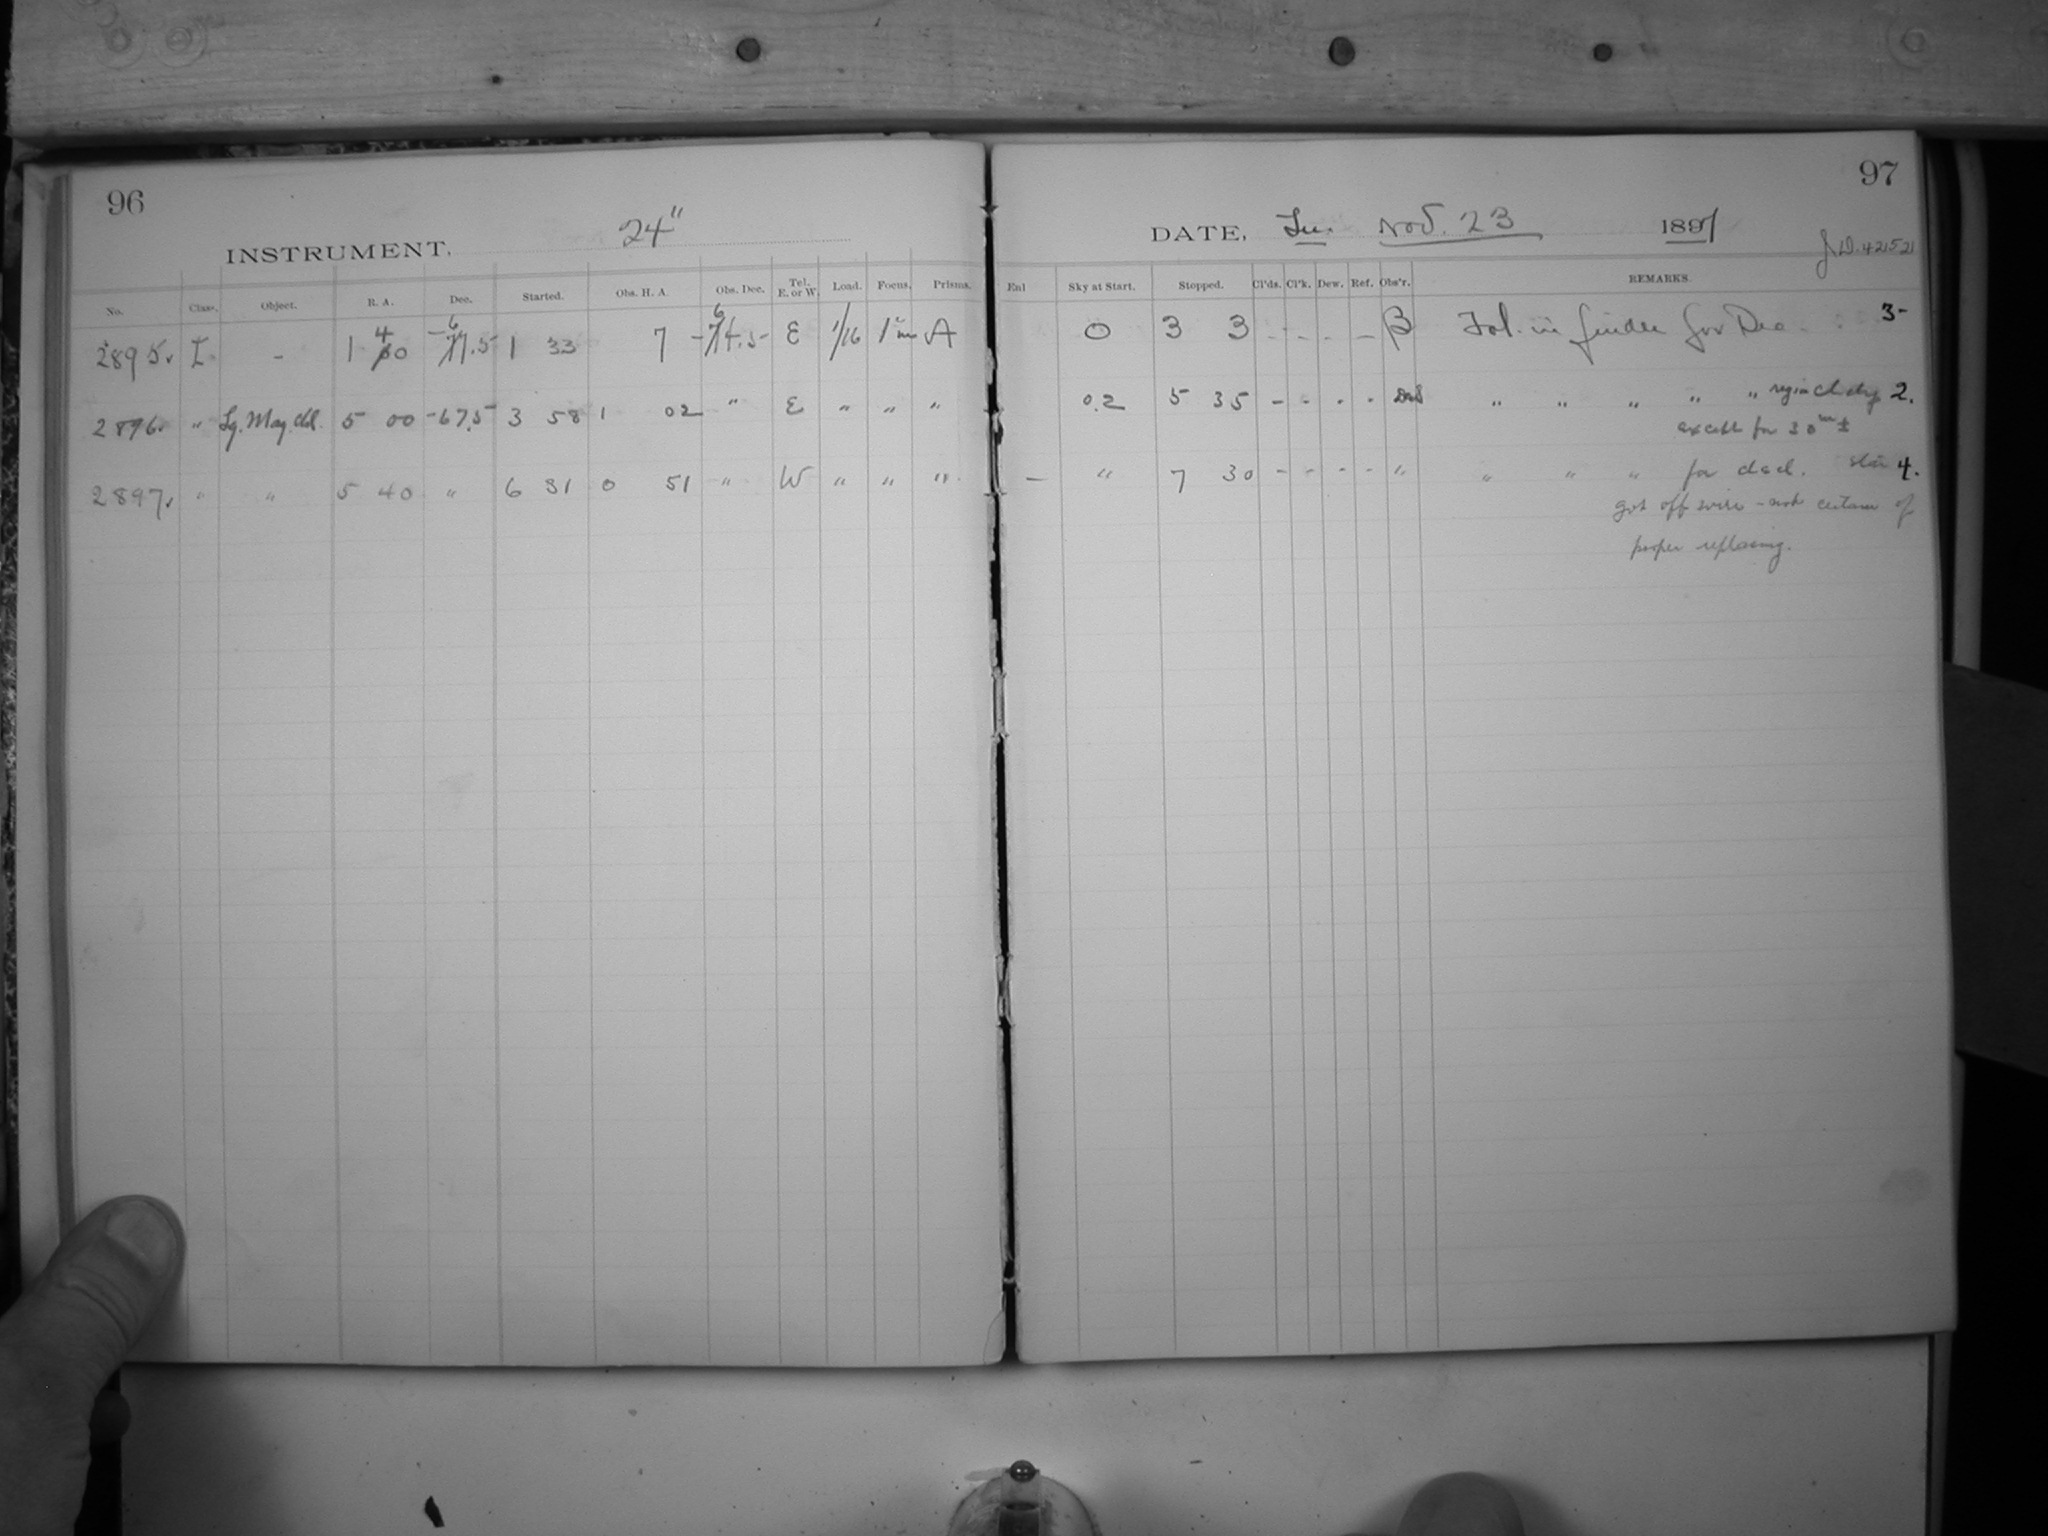 96
INSTRUMENT, 24"
No. Class. Object. R. A. Dec. Started. Obs. H. A. Obs. Dec. Tel. E. or W. Load. Focus. Prisms.
2895. I - 1 40 -67.5 1 33 7 -64.5 E 1/16 A
2896. " Lg. Mag. cld. 5 00 -67.5 3 58 1 02 " E " " "
2897. " " 5 40 " 6 31 0 51 " W " " "
97
DATE, Tu. Nov. 23 1897
J.D. 421521
Enl Sky at Start. Stopped. Cl'ds. Cl'k. Dew. Ref. Obs'r. REMARKS.
0 3 3 - - - - β Fol. in finder for Dec. 3-
0.2 5 35 - - - - " " " " " 2.
except for 30m ±
- " 7 30 - - - - " " " " for decl. star 4.
got off wire - not certain of
proper replacing.